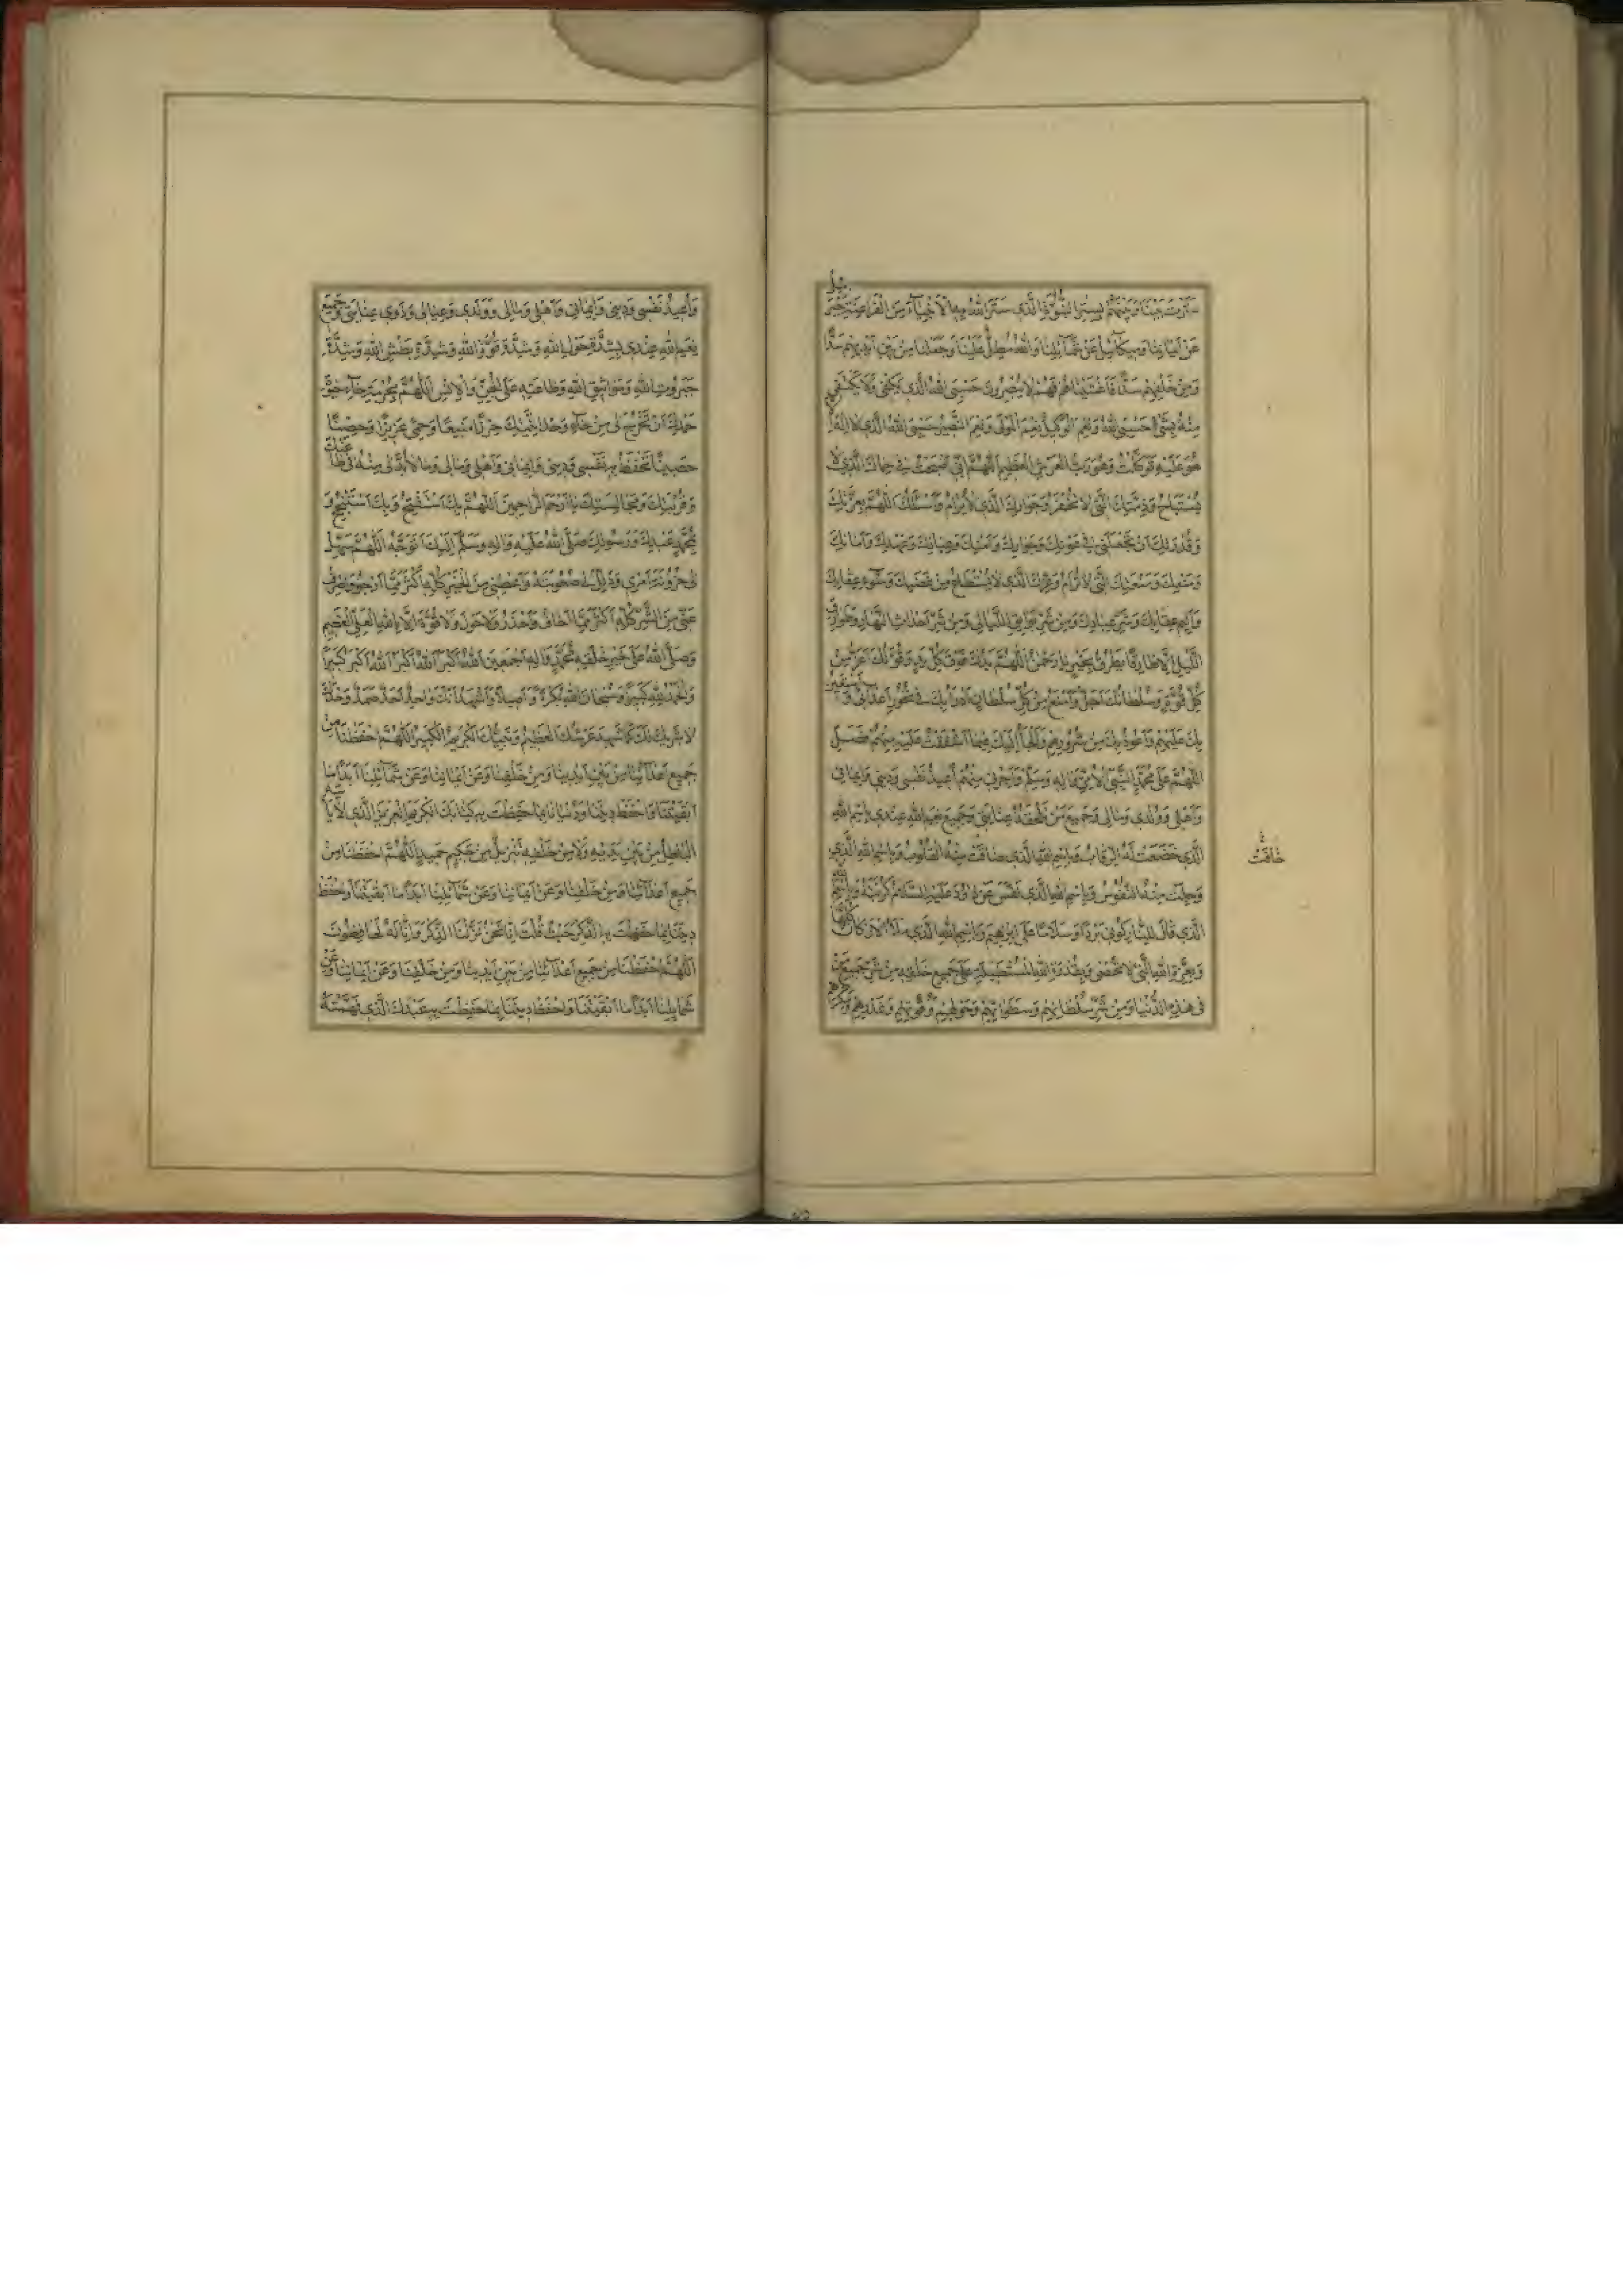 سترت بيننا وبينهم بستر النبوة الذي ستر الله به الأنبياء من الفراعنة جبرئيل
عن أيماننا وميكائيل عن شمائلنا والله مطل علينا وجعلنا من بين أيديهم سدا
ومن خلفهم سدا فأغشيناهم فهم لا يبصرون حسبي الله الذي يكفي ولا يكتفي
منه بشئ حسبي الله ونعم الوكيل نعم المولى ونعم النصير حسبي الله الذي لا إله إلا
هو عليه توكلت وهو رب العرش العظيم اللهم إني أصبحت في حماك الذي لا
يستباح وذمتك التي لا تخفر وجوارك الذي لا يرام وأسئلك اللهم بعزتك
وقدرتك أن تجعلني في عوذك وجوارك وأمنك وعهدك وأمانك
ومنعك التي لا ترام وعزك الذي لا يستطاع من غضبك وسوء عقابك
وأليم عقابك وشر عبادك ومن شر بوائق الليالي ومن شر أحداث النهار وطوارق
الليل إلا طارقا يطرق بخير يا رحمن اللهم يدك فوق كل يد وقوتك أعز من
كل قوة وسلطانك أجل وأمنع من كل سلطان أدرأ بك في نحور أعدائي وأستعين
بك عليهم وأعوذ بك من شرورهم وألجأ إليك فيما أشفقت عليه منهم فصل
اللهم على محمد النبي الأمي وآله وسلم وأجرني منهم أعيذ نفسي وديني وإيماني
وأهلي وولدي ومالي وجميع من تلحقه عنايتي وجميع نعم الله عندي باسم الله
الذي خضعت له الرقاب وباسم الله الذي خافت منه القلوب وباسم الله الذي
خافت
وجلت منه النفوس وباسم الله الذي نفس عن داود عليه السلام كربته وباسم الله
الذي قال للنار كوني بردا وسلاما على إبراهيم وباسم الله الذي ملأ الأركان كلها
وبعزة الله التي لا تحصى وبقدرة الله المستطيلة على جميع خلقه من شر جميع من
في هذه الدنيا ومن شر سلطانهم وسطواتهم وحولهم وقوتهم وغدرهم ومكرهم
وأعيذ نفسي وديني وإيماني وأهلي ومالي وولدي وعيالي وذوي عنايتي وجميع
نعم الله عندي بشدة حول الله وشدة قوة الله وشدة بطش الله وشدة
جبروت الله ومواثيق الله وطاعته على الجن والإنس اللهم
حصينا تحفظ به نفسي وديني وإيماني وأهلي ومالي وما لا بد لي منه
يا أرحم الراحمين اللهم بك أستفتح وبك أستنجح و
بمحمد عبدك ورسولك صلى الله عليه وآله وسلم إليك أتوجه اللهم سهل
لي حزونة أمري وذلل لي صعوبته وأعطني من الخير كله أكثر مما أرجو واصرف
عني من الشر كله أكثر مما أخاف وأحذر ولا حول ولا قوة إلا بالله العلي العظيم
وصلى الله على خير خلقه محمد وآله أجمعين الله أكبر الله أكبر الله أكبر كبيرا
والحمد لله كثيرا وسبحان الله بكرة وأصيلا وأشهد أنك واحد أحد صمد وحدك
لا شريك لك كما شهد عرشك العظيم ونبيك الكريم الكبير اللهم احفظنا من
جميع أعدائنا من بين أيدينا ومن خلفنا وعن أيماننا وعن شمائلنا أبدا ما
أبقيتنا واحفظ ديننا ودنيانا بما حفظت به كتابك الكريم العزيز الذي لا يأتيه
الباطل من بين يديه ولا من خلفه تنزيل من حكيم حميد اللهم احفظنا من
جميع أعدائنا ومن خلفنا وعن أيماننا وعن شمائلنا أبدا ما أبقيتنا واحفظ
ديننا بما حفظت به الذكر حيث قلت إنا نحن نزلنا الذكر وإنا له لحافظون
اللهم احفظنا من جميع أعدائنا من بين أيدينا ومن خلفنا وعن أيماننا وعن
شمائلنا أبدا ما أبقيتنا واحفظ ديننا بما حفظت به عبدك الذي فهمته